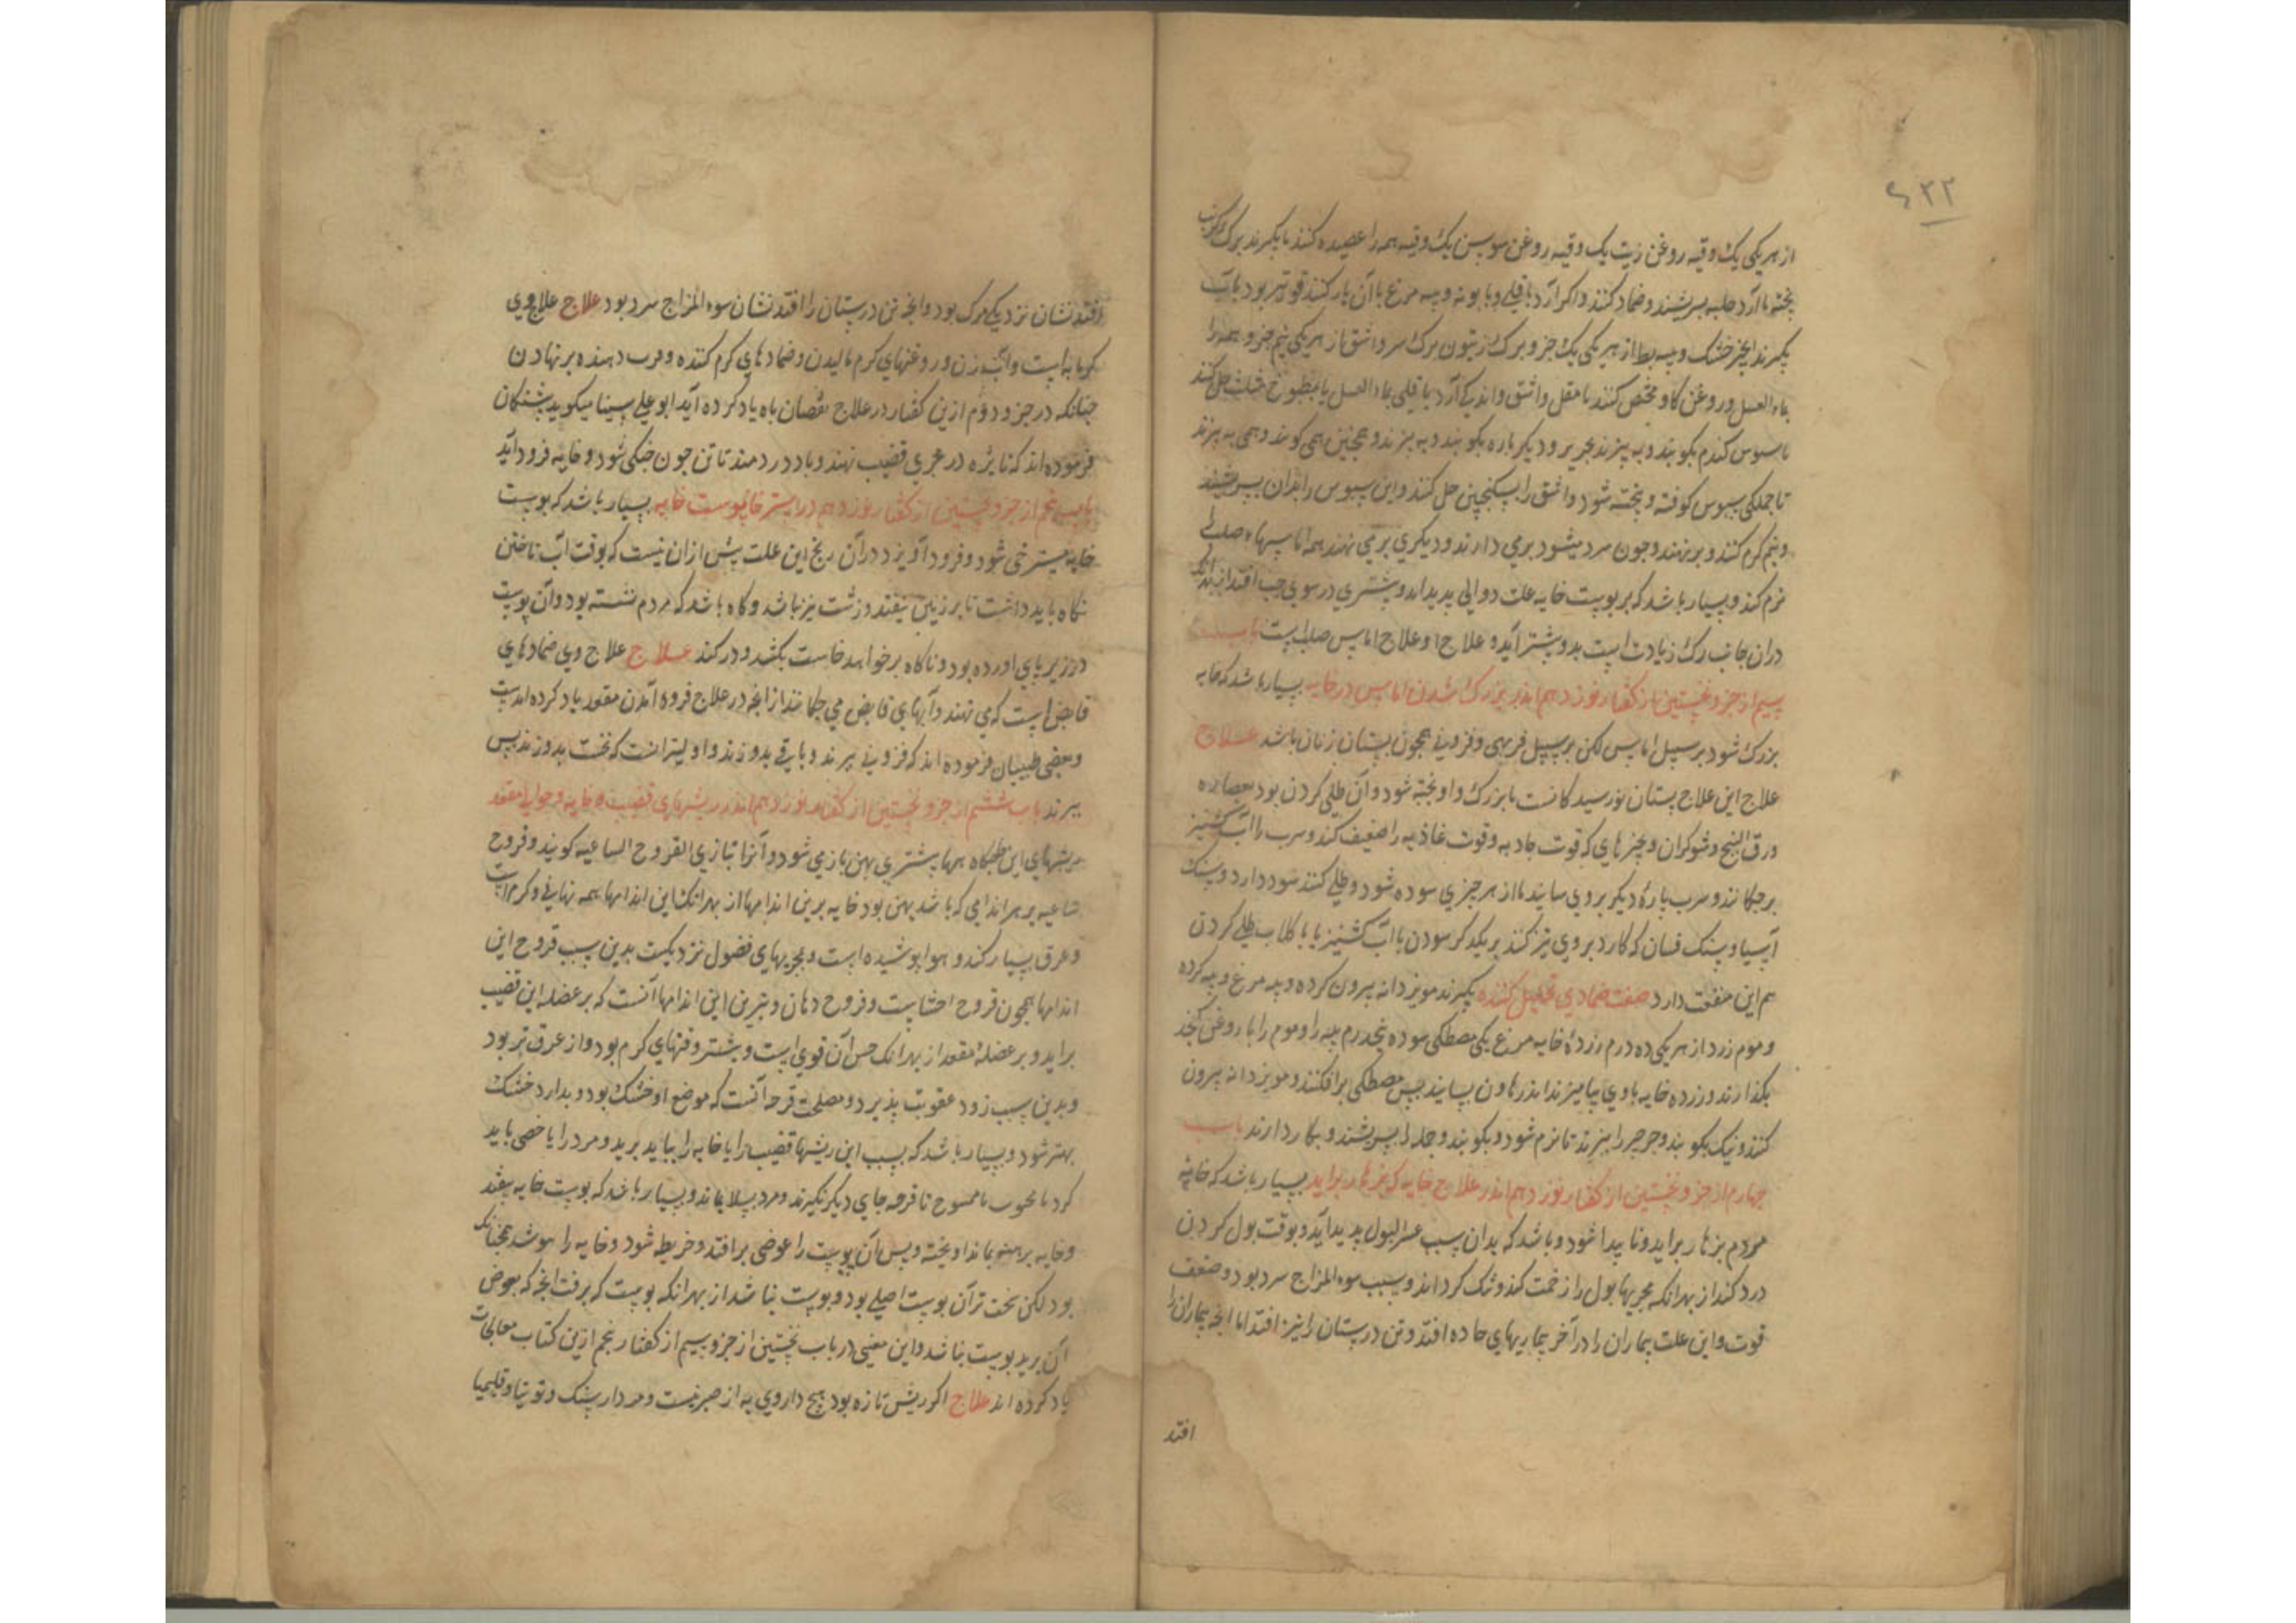 ۶۳۲
از هر یکی یک وقیه روغن زیت یک وقیه روغن سوسن یک وقیه همه را عصیده کنند یا بکیرند برک کرنب
پخته با آرد حلبه بسریشند و ضماد کنند و اکر آرد باقلی و بابونه و پیه مرغ با آن یار کنند قوی‌تر بود باب
بکیرند انجیر خشک و پیه بط از هر یکی یک جزو برک زیتون برک سرو اشق از هر یکی نیم جزو همه را
بماء العسل و روغن کاو کنند با مقل و اشق و اندکی آرد باقلی بماء العسل یا بمطبوخ مثلث حل کنند
یا سبوس کندم بکوبند و به پزند بحریر و دیکر باره بکوبند و به پزند و همچنین همی کوبند و همی به پزند
تا جملکی سبوس کوفته و پخته شود و اشق را بسکنجبین حل کنند و این سبوس را بدان بسریشند
و نیم کرم کنند و بر نهند و چون سرد میشود بر می دارند و دیکری بر می نهند همه اماسهاء صلب
نرم کند و بسیار باشد که بر پوست خایه علت دوالی پدید اید و بیشتری در سوی چپ افتد از بهر آنکه
در ان جانب رک زیادت است بدو بیشتر آید و علاج او علاج اماس صلب است باب
سیم از جزو نخستین از کفتار نوزدهم اندر بزرک شدن اماس در خایه بسیار باشد که خایه
بزرک شود بر سبیل اماس لکن بر سبیل فربهی و فزونی همچون پستان زنان باشد علاج
علاج این علاج پستان نورسیدکانست تا بزرک و اویخته نشود و آن طلی کردن بود بعصاره
ورق البنج و شوکران و چیزهای که قوت جاذبه و قوت غاذیه را ضعیف کند و سرب را آب کشنیز
بر چکانند و سرب پارهٔ دیکر بر وی سایند تا از هر چیزی سوده شود و طلی کنند سود دارد و سنک
آسیا و سنک فسان که کارد بر وی تیز کنند بر یکدکر سودن با آب کشنیز یا با کلاب طلی کردن
هم این منفعت دارد صفت ضمادی تحلیل کننده بکیرند مویز دانه بیرون کرده و پیه مرغ و پیه کرده
و موم زرد از هر یکی ده درم زردهٔ خایه مرغ یکی مصطکی سوده پنجدرم پیه را و موم را با روغن کنجد
بکدازند و زرده خایه با وی بیامیزند اندر هاون بسایند پس مصطکی بر افکنند و مویز دانه بیرون
کنند و نیک بکوبند و جرجیر را بپزند تا نرم شود و بکوبند و جمله را بسریشند و بکار دارند باب
چهارم از جزو نخستین از کفتار نوزدهم اندر علاج خایه که بزهار براید بسیار باشد که خایهٔ
مردم بزهار براید و نا پیدا شود و باشد که بدان سبب عسر البول پدید آید و بوقت بول کردن
درد کند از بهر انکه مجریها بول را زحمت کند و تنک کرداند و سبب سوء المزاج سرد بود و ضعف
قوت و این علت بیماران را در آخر بیماریهای حاده افتد و تن درستان را نیز افتد اما انچه بیماران را
افتد
افتد نشان نزدیکی مرک بود و انچه تن درستان را افتد نشان سوء المزاج سرد بود علاج علاج وی
کرمابه است و آب زن و روغنهای کرم مالیدن و ضمادهای کرم کننده و بر نهادن
چنانکه در جزو دوم ازین کفتار در علاج نقصان باه یاد کرده آید ابو علی سینا میکوید پیشینکان
فرموده اند که نایژه در مجری قضیب نهند و باد در دمند تا تن چون خیکی شود و خایه فرود آید
باب پنجم از جزو نخستین از کفتار نوزدهم در استرخا پوست خایه بسیار باشد که پوست
خایه مسترخی شود و فرود آویزد در آن رنج این علت بیش از ان نیست که بوقت آب تاختن
نکاه باید داشت تا بر زمین نیفتد و زشت نیز باشد و کاه باشد که مردم نشسته بود و آن پوست
در زیر پای اورده بود و ناکاه بر خواهد خاست بکشد و درد کند علاج علاج وی ضمادهای
قابض است که می نهند و آبهای قابض می چکانند از انچه در علاج فرود آمدن مقعد یاد کرده امدست
و بعضی طبیبان فرموده اند که فزونی ببرند و باقی بدوزند و اولیتر انست که نخست بدوزند پس
ببرند باب ششم از جزو نخستین از کفتار نوزدهم اندر ریشهای قضیب و خایه و حوالی مقعد
ریشهای این جایکاه بیشتری پهن باز می شود و آنرا بتازی القروح الساعیه کویند و قروح
ساعیه بر هر اندامی که باشد پهن بود خایه برین اندامها از بهر انک این اندامها همه نهانی و کرم است
و عرق بسیار کند و هوا پوشیده است و مجریهای فضول نزدیکست بدین سبب قروح این
اندامها همچون قروح احشاست و قروح دهان و بترین این اندامها آنست که بر عضله این قضیب
براید و بر عضلهٔ مقعد از بهر انک حس آن قوی است و بیشتر وقتهای کرم بود و از عرق تر بود
و بدین سبب زود عفونت پذیرد و مصلحت قرحه آنست که موضع او خشک بود و بدارد خشک
بهتر شود و بسیار باشد که بسبب این ریشها قضیب را یا خایه را بباید برید و مرد را یا خصی باید
کرد یا مجبوب یا ممسوح تا قرحه جای دیکر نکیرند و مرد بسلامت بماند و بسیار باشد که پوست خایه بیفتد
و خایه برهنه بماند اویخته و پس آن پوست را عوضی بر افتد و خریطه شود و خایه را بپوشد همچنانک
بود لکن سخت تر آن پوست اصلی بود و پوست نباشد از بهر انکه پوست که برفت انچه که بعوض
آن بروید پوست نباشد و این معنی در باب نخستین از جزو سیم از کفتار پنجم ازین کتاب معالجات
یاد کرده اند علاج اکر ریش تازه بود هیچ داروی به از صبر نیست و مردارسنک و توتیا و قلیمیا